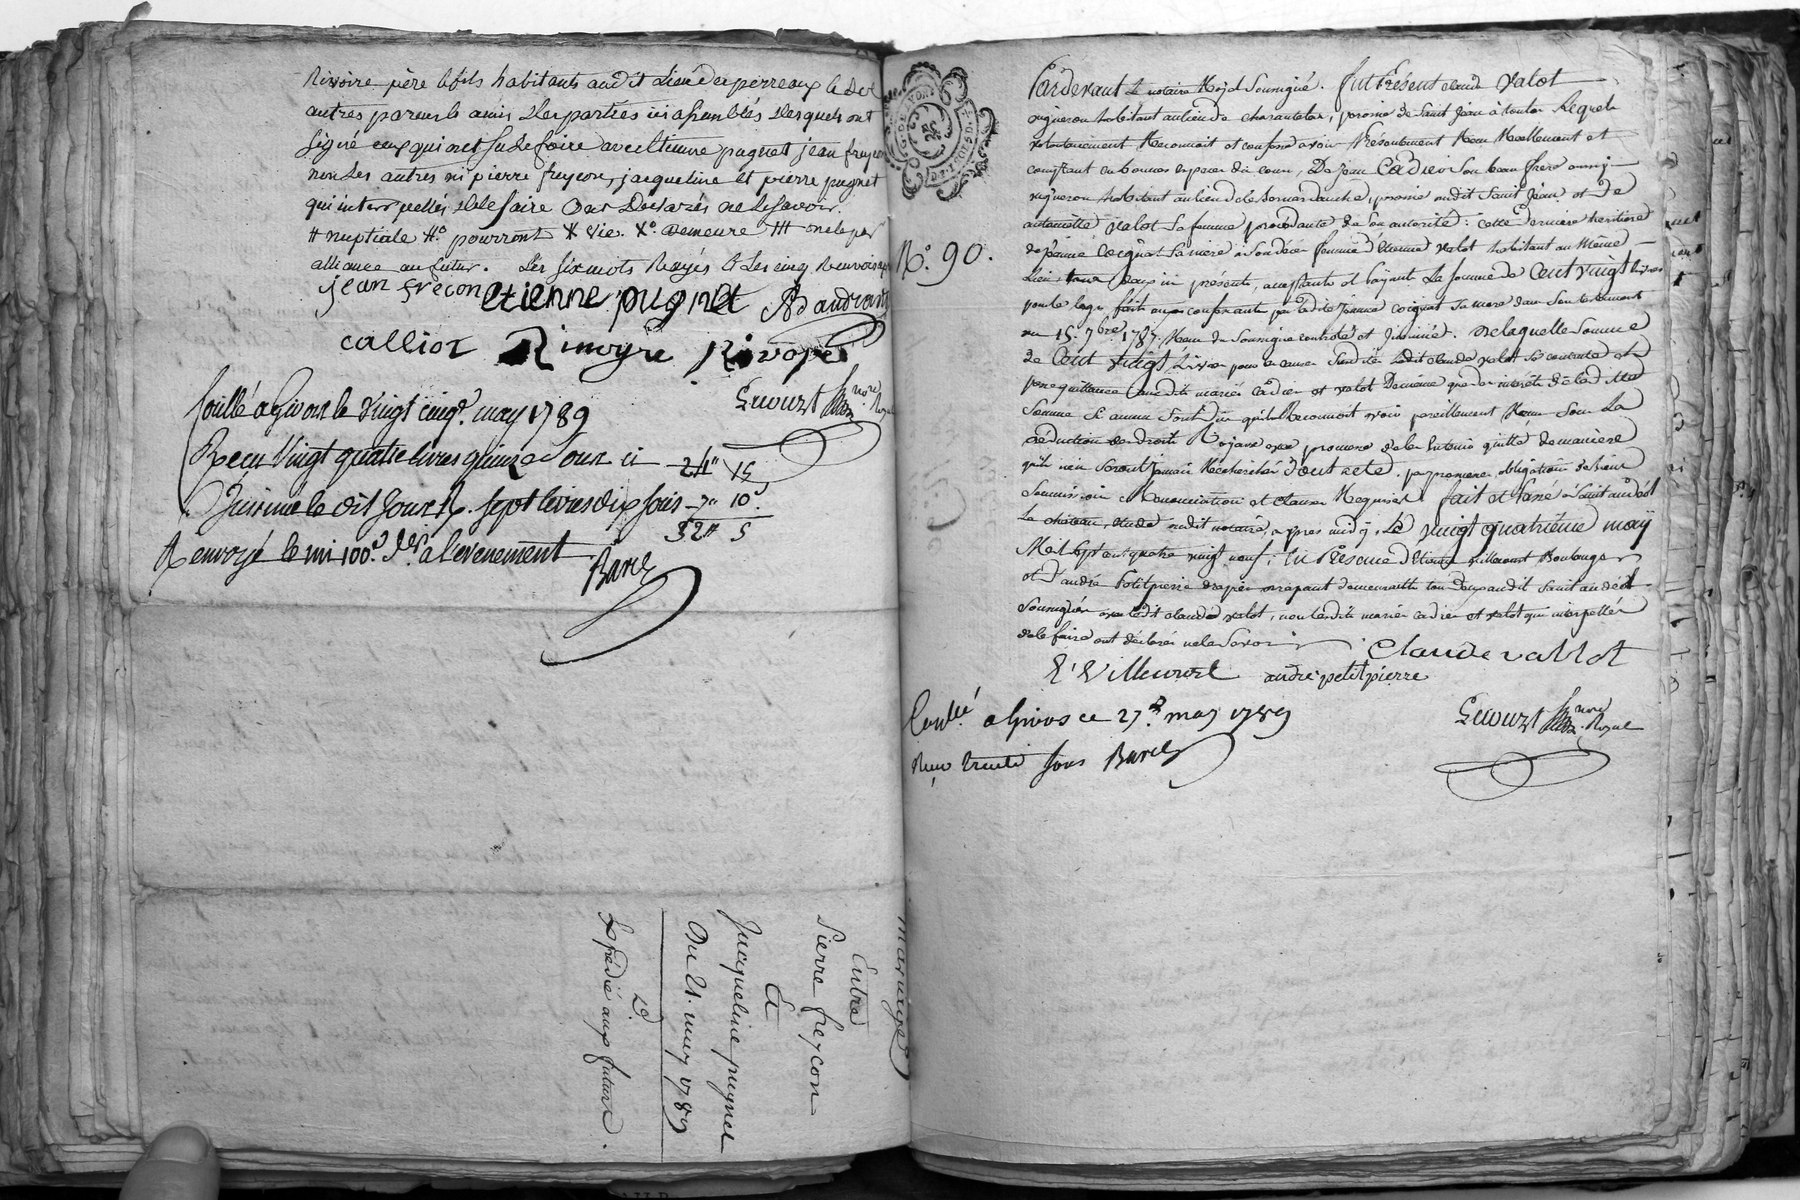 Rivoire père & fils habitants audit lieu de perreaux & de
autres parents & amis des parties ici assemblés desquels ont
signé ceux qui ont su le faire avec etienne pugnet jean freycon
non les autres ni pierre freycon, jacqueline et pierre pugnet
qui interpellés de le faire ont déclarés ne le savoir.
# nuptiale #° pourront X vie. X° demeure ### onele par
alliance au futur. Les six mots Rayés & Les cinq Renvois
jean frecon etienne pugnet Baudrand
calliot Rimoyre Rivoyre
Guourzt nore Royal
Conllé a Givors le vingt cinq. may 1789
Recu vingt quatre livres quinze sous ci 24" 15
Insinué le dit jour R. sept livres dix sous 7" 10s
32" 5
Renvoyé le mi 100e d. a l'evenement
Barel
mariage
Entre
Pierre freycon
Et
Jacqueline pugnet
Du 21. may 1789
Expédié aux futurs.
N°. 90.
Pardevant Le notaire Royal Soussigné. fut Présent claude valot
vigneron habitant au lieu de charantelon, paroisse de Saint Jean à toulas Lequel
volontairement Reconnoit et confesse avoir Présentement Reçu Réellement et
comptant en bonnes espèces de cours, De Jean Cadier son beau frere aussi
vigneron habitant au lieu de la bernardauche, paroisse audit Saint Jean et de
antoinette valot sa femme procedante de son autorité : cette derniere heritiere
de jeanne coignet sa mere à son décès femme d'Etienne valot habitant au même
lieu, ceux ici présents, acceptants et payant La somme de Cent vingt livres
pour le legs fait au confessant par ladite jeanne coignet sa mere dans son testament
du 15. 7bre. 1787. Reçu du Soussigné controlé et insinué. De laquelle Somme
de Cent vingt Livres pour les causes Susdites ledit claude valot se contente et
passe quittance auxdits mariés cadier et valot De même que des interêts de ladite
Somme Si aucuns Sont dus qu'il Reconnoit avoir pareillement Reçus Sous La
déduction des droits Royaux avec promesse de les entenir quitte de maniere
qu'ils n'en Seront jamais Recherchés Dont acte. par promesse, obligation de biens
Soumission & Renonciation et clauses Requises. fait et Passé à Saint andéol
Le chateau, etude dudit notaire, apres midy, Le vingt quatrième may
Mil Sept cent quatre vingt neuf : En Présence d'Etienne villecourt Boulanger
et d'andré Petitpierre drapier drapant demeurants tous deux audit Saint andéol
Soussignés avec ledit claude valot, non lesdits mariés cadier et valot qui interpellés
de le faire ont déclarés ne le Savoir
Claude vallot
E' Villecourt andré petitpierre
Guourzt nore Royal
Conllé a Givors ce 27e. may 1789
Reçu trente sous Barel